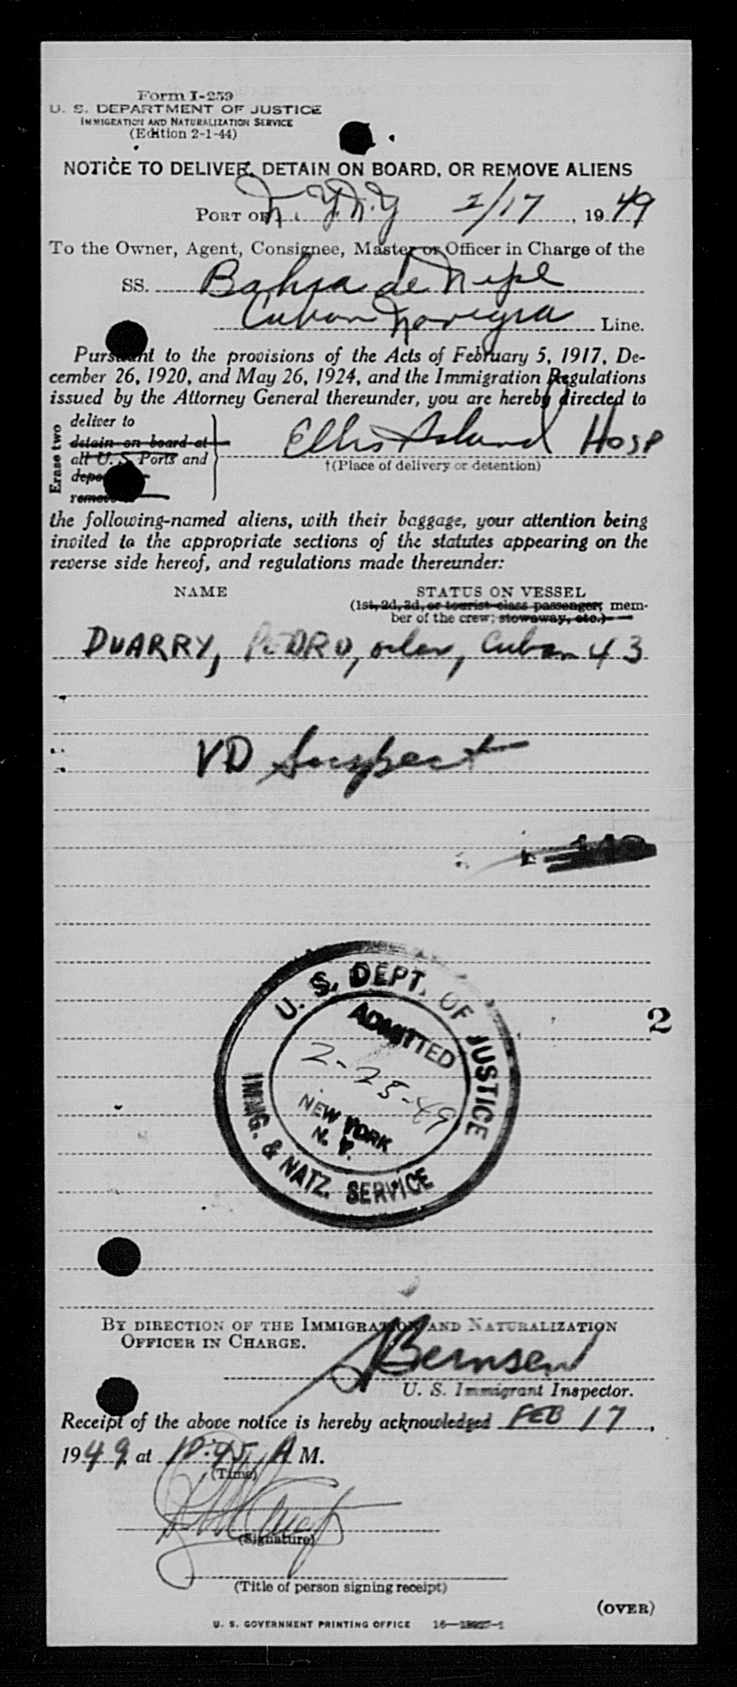 Form I-259
U. S. DEPARTMENT OF JUSTICE
IMMIGRATION AND NATURALIZATION SERVICE
(Edition 2-1-44)
NOTICE TO DELIVER, DETAIN ON BOARD, OR REMOVE ALIENS
PORT OF N.Y.N.Y 2/17, 1949
To the Owner, Agent, Consignee, Master or Officer in Charge of the
SS. Bahia de Nipe
Cuban Line.
Pursuant to the provisions of the Acts of February 5, 1917, De-
cember 26, 1920, and May 26, 1924, and the Immigration Regulations
issued by the Attorney General thereunder, you are hereby directed to
Erase two
deliver to
detain on board at
all U. S. Ports and
remove
Ellis Island Hosp
†(Place of delivery or detention)
the following-named aliens, with their baggage, your attention being
invited to the appropriate sections of the statutes appearing on the
reverse side hereof, and regulations made thereunder:
NAME STATUS ON VESSEL
(1st, 2d, 3d, or tourist class passenger; mem-
ber of the crew; stowaway, etc.)
DUARRY, PEDRO, oiler, Cuban 43
VD Suspect
2
U. S. DEPT. OF JUSTICE
ADMITTED
2-25-49
NEW YORK
N. Y.
IMMG. & NATZ. SERVICE
BY DIRECTION OF THE IMMIGRATION AND NATURALIZATION
OFFICER IN CHARGE.
Bernsen
U. S. Immigrant Inspector.
Receipt of the above notice is hereby acknowledged FEB 17,
1949, at 10:45 A M.
(Time)
(Signature)
(Title of person signing receipt)
(OVER)
U. S. GOVERNMENT PRINTING OFFICE